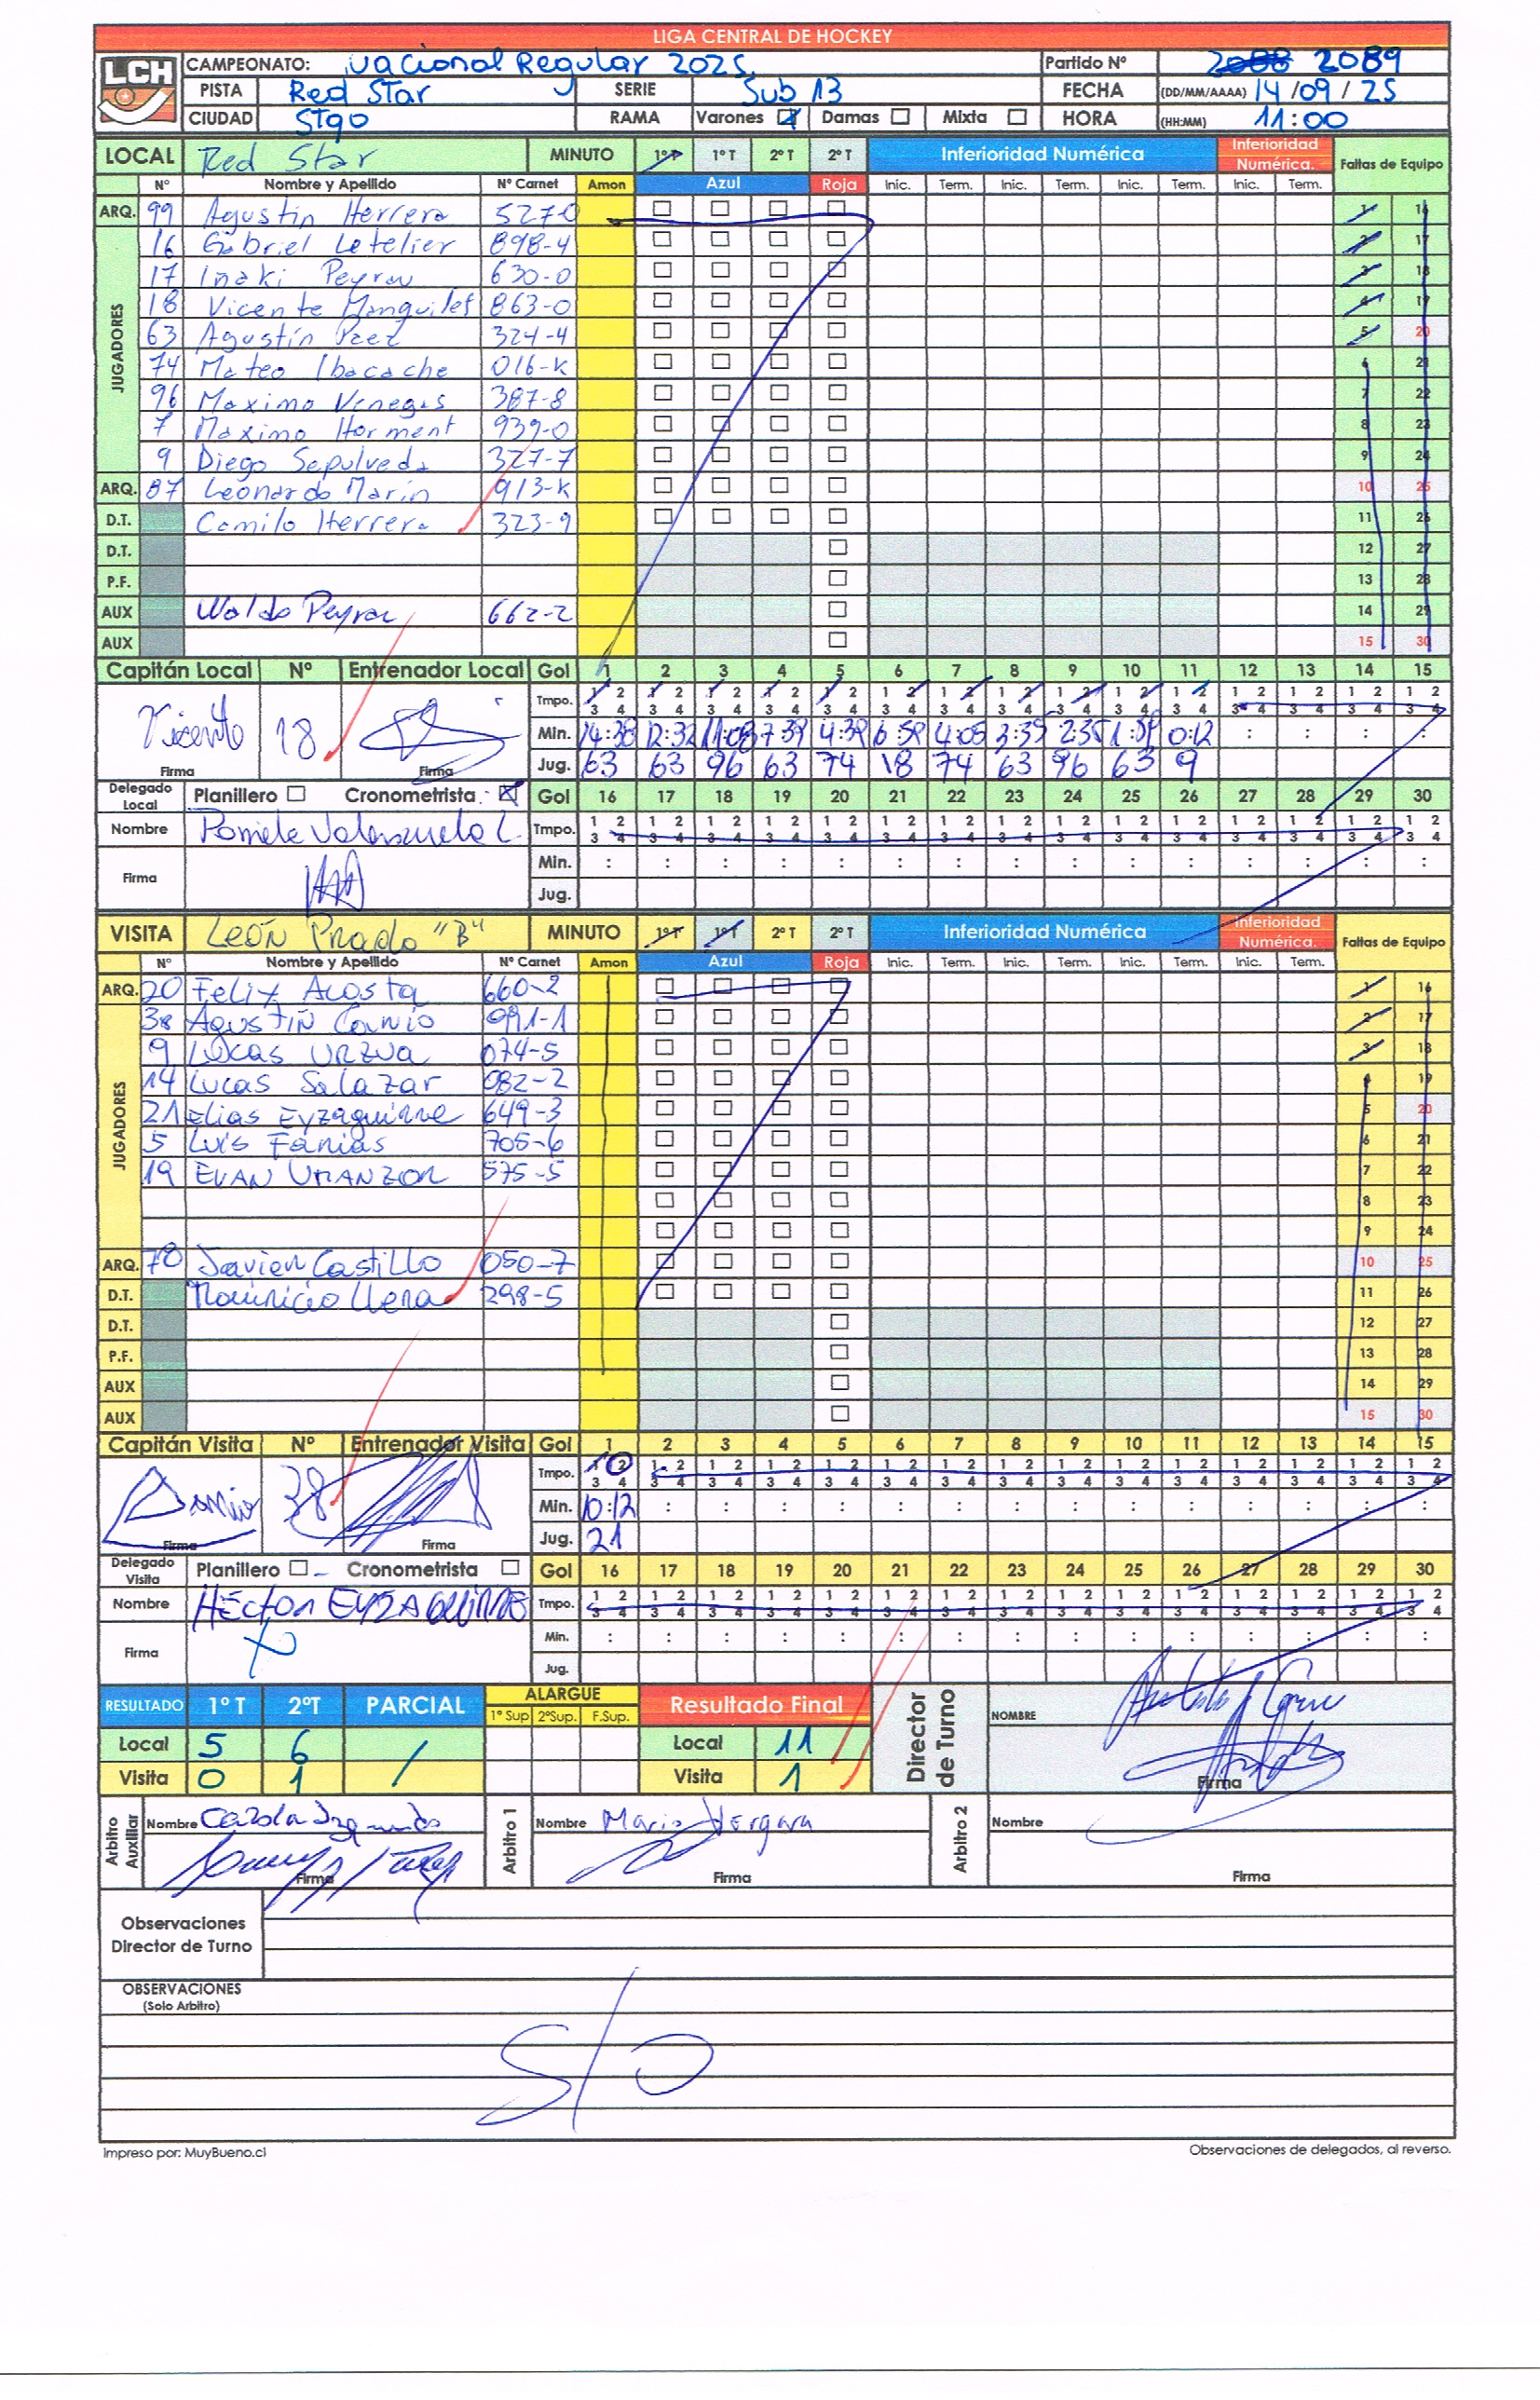 LIGA CENTRAL DE HOCKEY
LCH CAMPEONATO: Nacional Regular 2025 Partido Nº 2088 2089
PISTA Red Star SERIE Sub 13 FECHA (DD/MM/AAAA) 14/09/25
CIUDAD Stgo RAMA Varones Damas Mixta HORA (HH:MM) 11:00
LOCAL Red Star MINUTO 1º T 1º T 2º T 2º T Inferioridad Numérica Inferioridad Numérica. Faltas de Equipo
Nº Nombre y Apellido Nº Carnet Amon Azul Roja Inic. Term. Inic. Term. Inic. Term. Inic. Term.
ARQ. 99 Agustin Herrera 527-0 1 16
JUGADORES
16 Gabriel Letelier 898-4 2 17
17 Iñaki Peyrau 630-0 3 18
18 Vicente 863-0 4 19
63 Agustín Paez 324-4 5 20
74 Mateo Ibacache 016-K 6 21
96 Maximo Venegas 387-8 7 22
7 Maximo Horment 939-0 8 23
9 Diego Sepulveda 327-7 9 24
ARQ. 87 Leonardo Marin 913-K 10 25
D.T. Camilo Herrera 323-9 11 26
D.T. 12 27
P.F. 13 28
AUX Waldo Peyrau 662-2 14 29
AUX 15 30
Capitán Local Nº Entrenador Local Gol 1 2 3 4 5 6 7 8 9 10 11 12 13 14 15
Tmpo. 1 2 3 4 1 2 3 4 1 2 3 4 1 2 3 4 1 2 3 4 1 2 3 4 1 2 3 4 1 2 3 4 1 2 3 4 1 2 3 4 1 2 3 4 1 2 3 4 1 2 3 4 1 2 3 4 1 2 3 4
Vicente 18 Min. 14:38 12:32 11:08 7:39 4:39 6:58 4:05 3:35 2:35 1:59 0:12 : : : :
Firma Firma Jug. 63 63 96 63 74 18 74 63 96 63 9
Delegado Local Planillero Cronometrista Gol 16 17 18 19 20 21 22 23 24 25 26 27 28 29 30
Nombre Pamela Valenzuela C. Tmpo. 1 2 3 4 1 2 3 4 1 2 3 4 1 2 3 4 1 2 3 4 1 2 3 4 1 2 3 4 1 2 3 4 1 2 3 4 1 2 3 4 1 2 3 4 1 2 3 4 1 2 3 4 1 2 3 4 1 2 3 4
Firma Min. : : : : : : : : : : : : : : :
Jug.
VISITA León Prado "B" MINUTO 1º T 1º T 2º T 2º T Inferioridad Numérica Inferioridad Numérica. Faltas de Equipo
Nº Nombre y Apellido Nº Carnet Amon Azul Roja Inic. Term. Inic. Term. Inic. Term. Inic. Term.
ARQ. 20 Felix Acosta 660-2 1 16
JUGADORES
38 Agustiñ Cornio 091-1 2 17
9 Lucas Urzua 074-5 3 18
14 Lucas Salazar 082-2 4 19
21 Elias Eyzaguirre 649-3 5 20
5 Luis Farias 705-6 6 21
19 Evan Umanzor 575-5 7 22
8 23
9 24
ARQ. 70 Javier Castillo 050-7 10 25
D.T. Mauricio Llera 298-5 11 26
D.T. 12 27
P.F. 13 28
AUX 14 29
AUX 15 30
Capitán Visita Nº Entrenador Visita Gol 1 2 3 4 5 6 7 8 9 10 11 12 13 14 15
Tmpo. 1 2 3 4 1 2 3 4 1 2 3 4 1 2 3 4 1 2 3 4 1 2 3 4 1 2 3 4 1 2 3 4 1 2 3 4 1 2 3 4 1 2 3 4 1 2 3 4 1 2 3 4 1 2 3 4 1 2 3 4
38 Min. 10:12 : : : : : : : : : : : : : :
Firma Firma Jug. 21
Delegado Visita Planillero Cronometrista Gol 16 17 18 19 20 21 22 23 24 25 26 27 28 29 30
Nombre Héctor Eyzaguirre Tmpo. 1 2 3 4 1 2 3 4 1 2 3 4 1 2 3 4 1 2 3 4 1 2 3 4 1 2 3 4 1 2 3 4 1 2 3 4 1 2 3 4 1 2 3 4 1 2 3 4 1 2 3 4 1 2 3 4 1 2 3 4
Firma Min. : : : : : : : : : : : : : : :
Jug.
RESULTADO 1º T 2ºT PARCIAL ALARGUE Resultado Final Director de Turno NOMBRE
1º Sup 2ºSup. F.Sup.
Local 5 6 / Local 11
Visita 0 1 / Visita 1 Firma
Arbitro Auxiliar Nombre Carola Arbitro 1 Nombre Mario Vergara Arbitro 2 Nombre
Firma Firma Firma
Observaciones Director de Turno
OBSERVACIONES
(Solo Arbitro)
S/O
Impreso por: MuyBueno.cl Observaciones de delegados, al reverso.